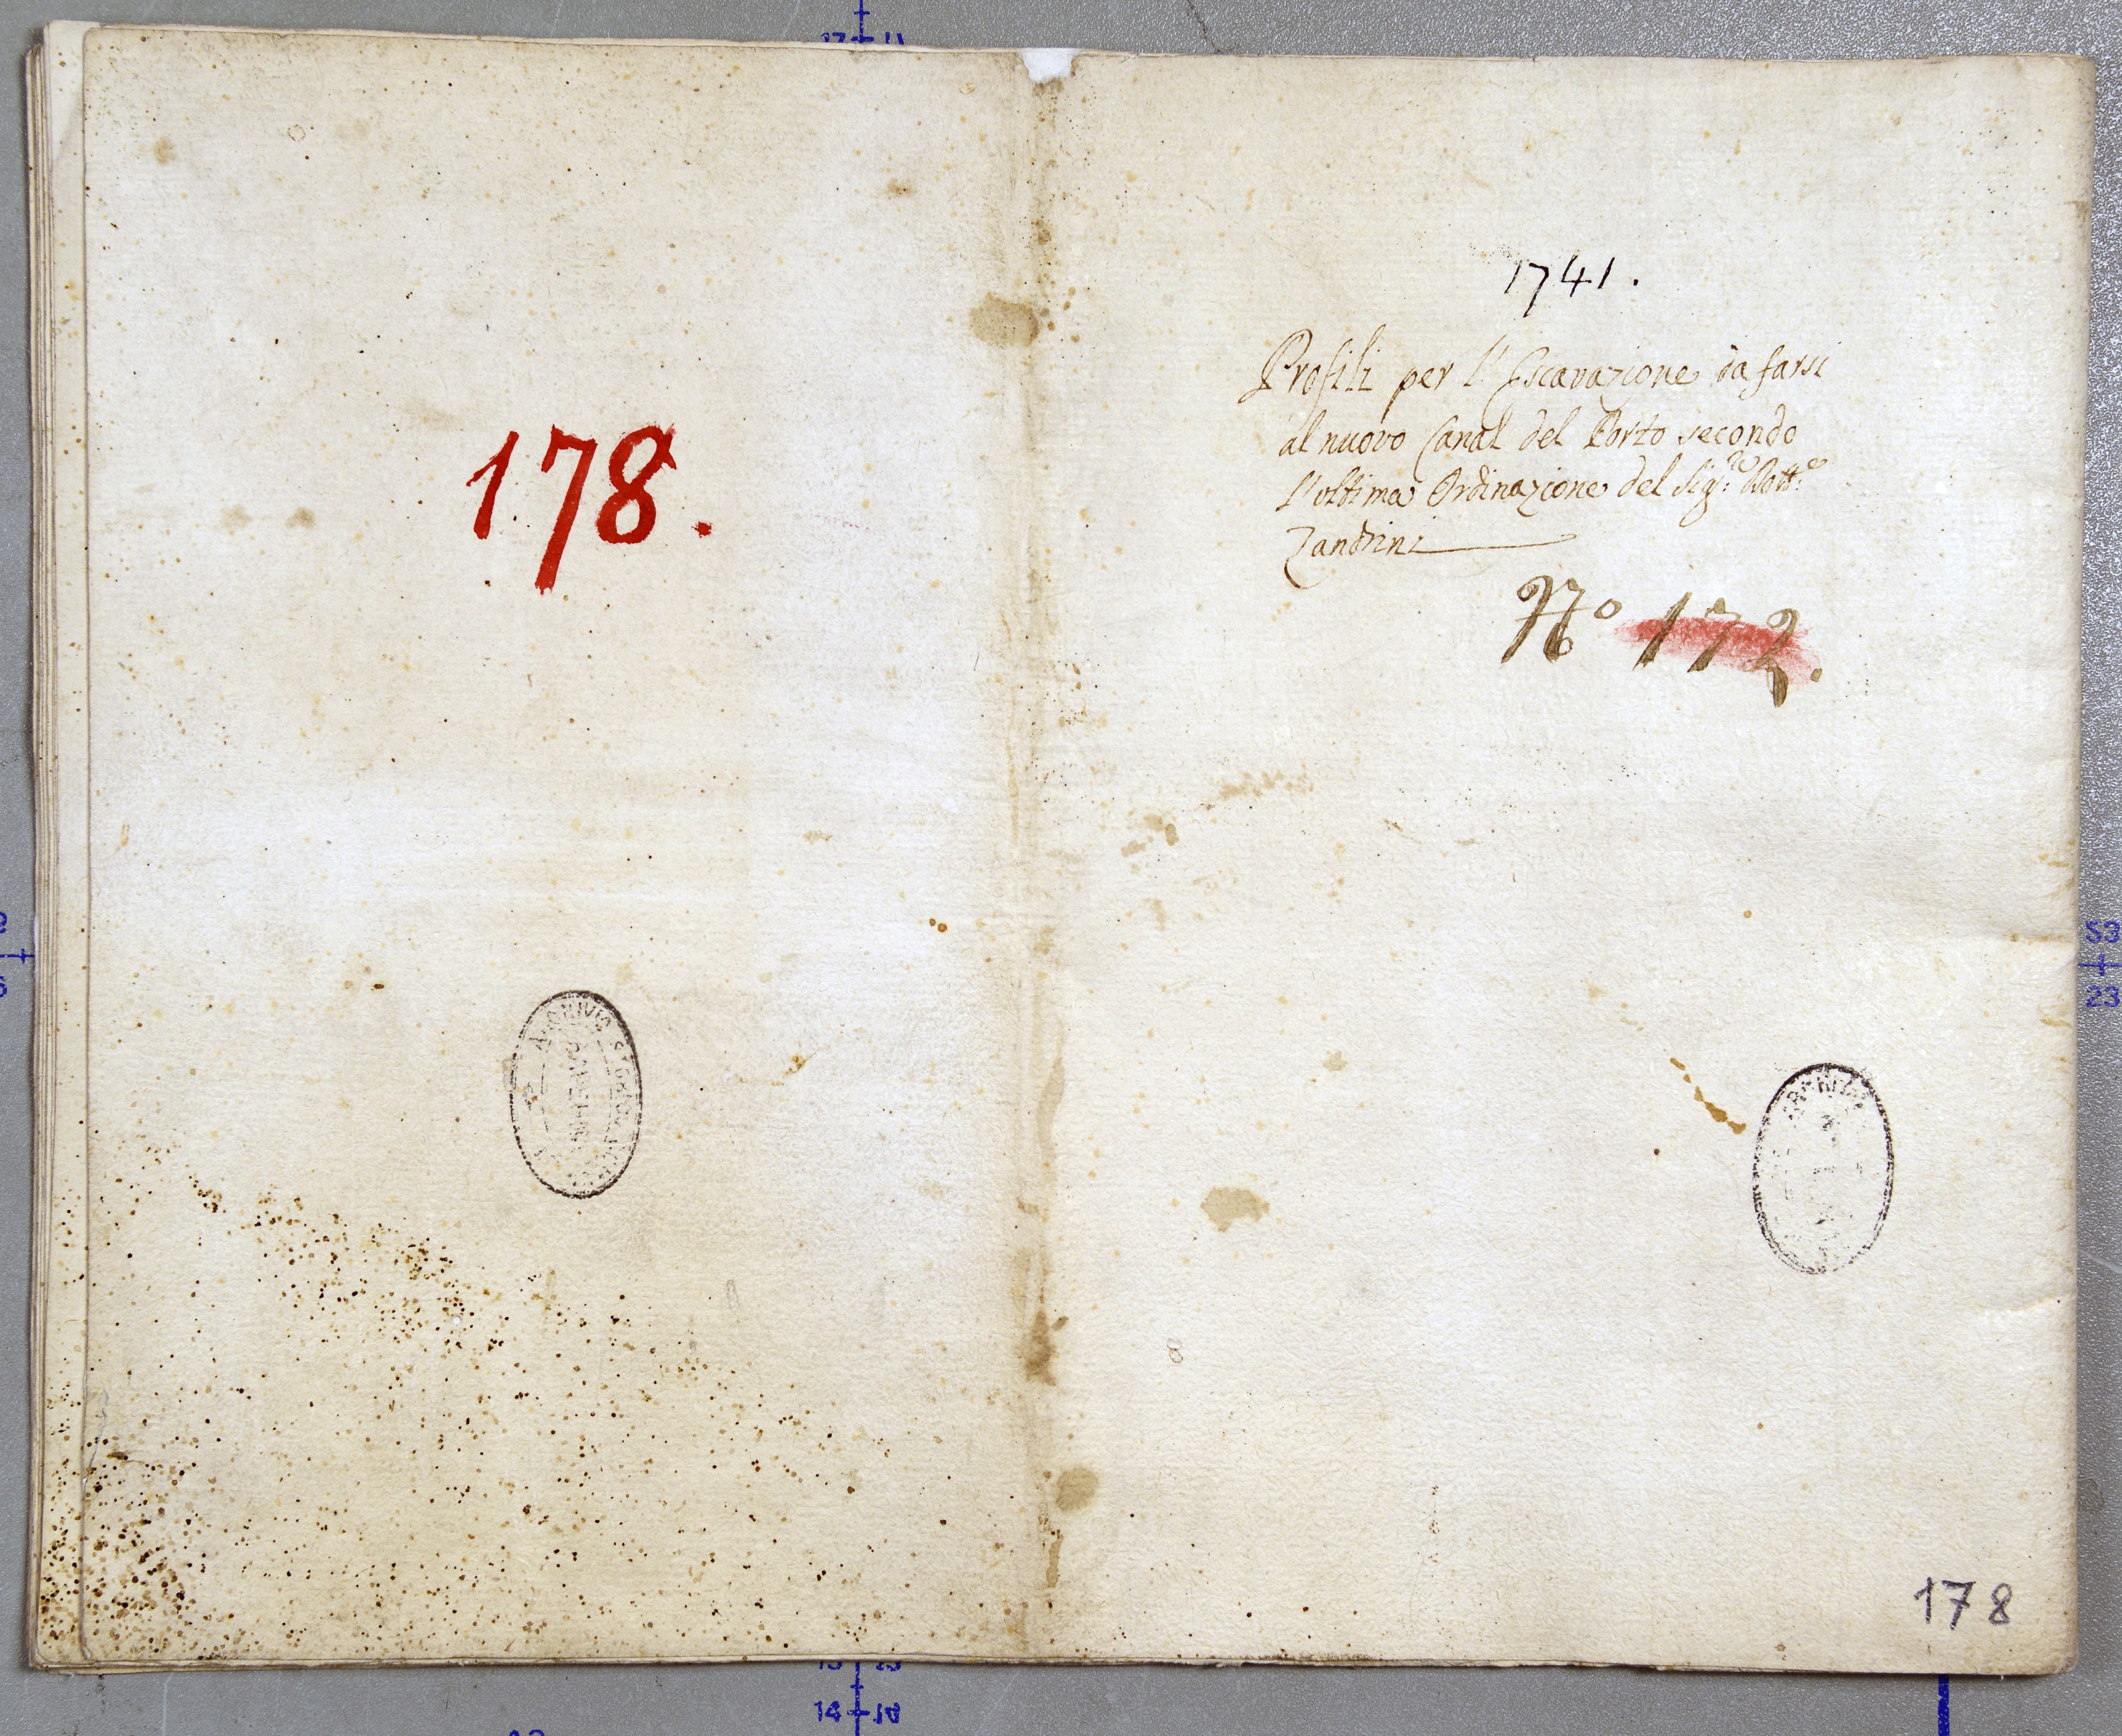 178.
ARCHIVIO STORICO
1741.
Profili per l'Escavazione da farsi
al nuovo Canal del Porto secondo
l'oltima Ordinazione del Sig.re Dott.e
Zandrini
No 172.
178
S3
23
14